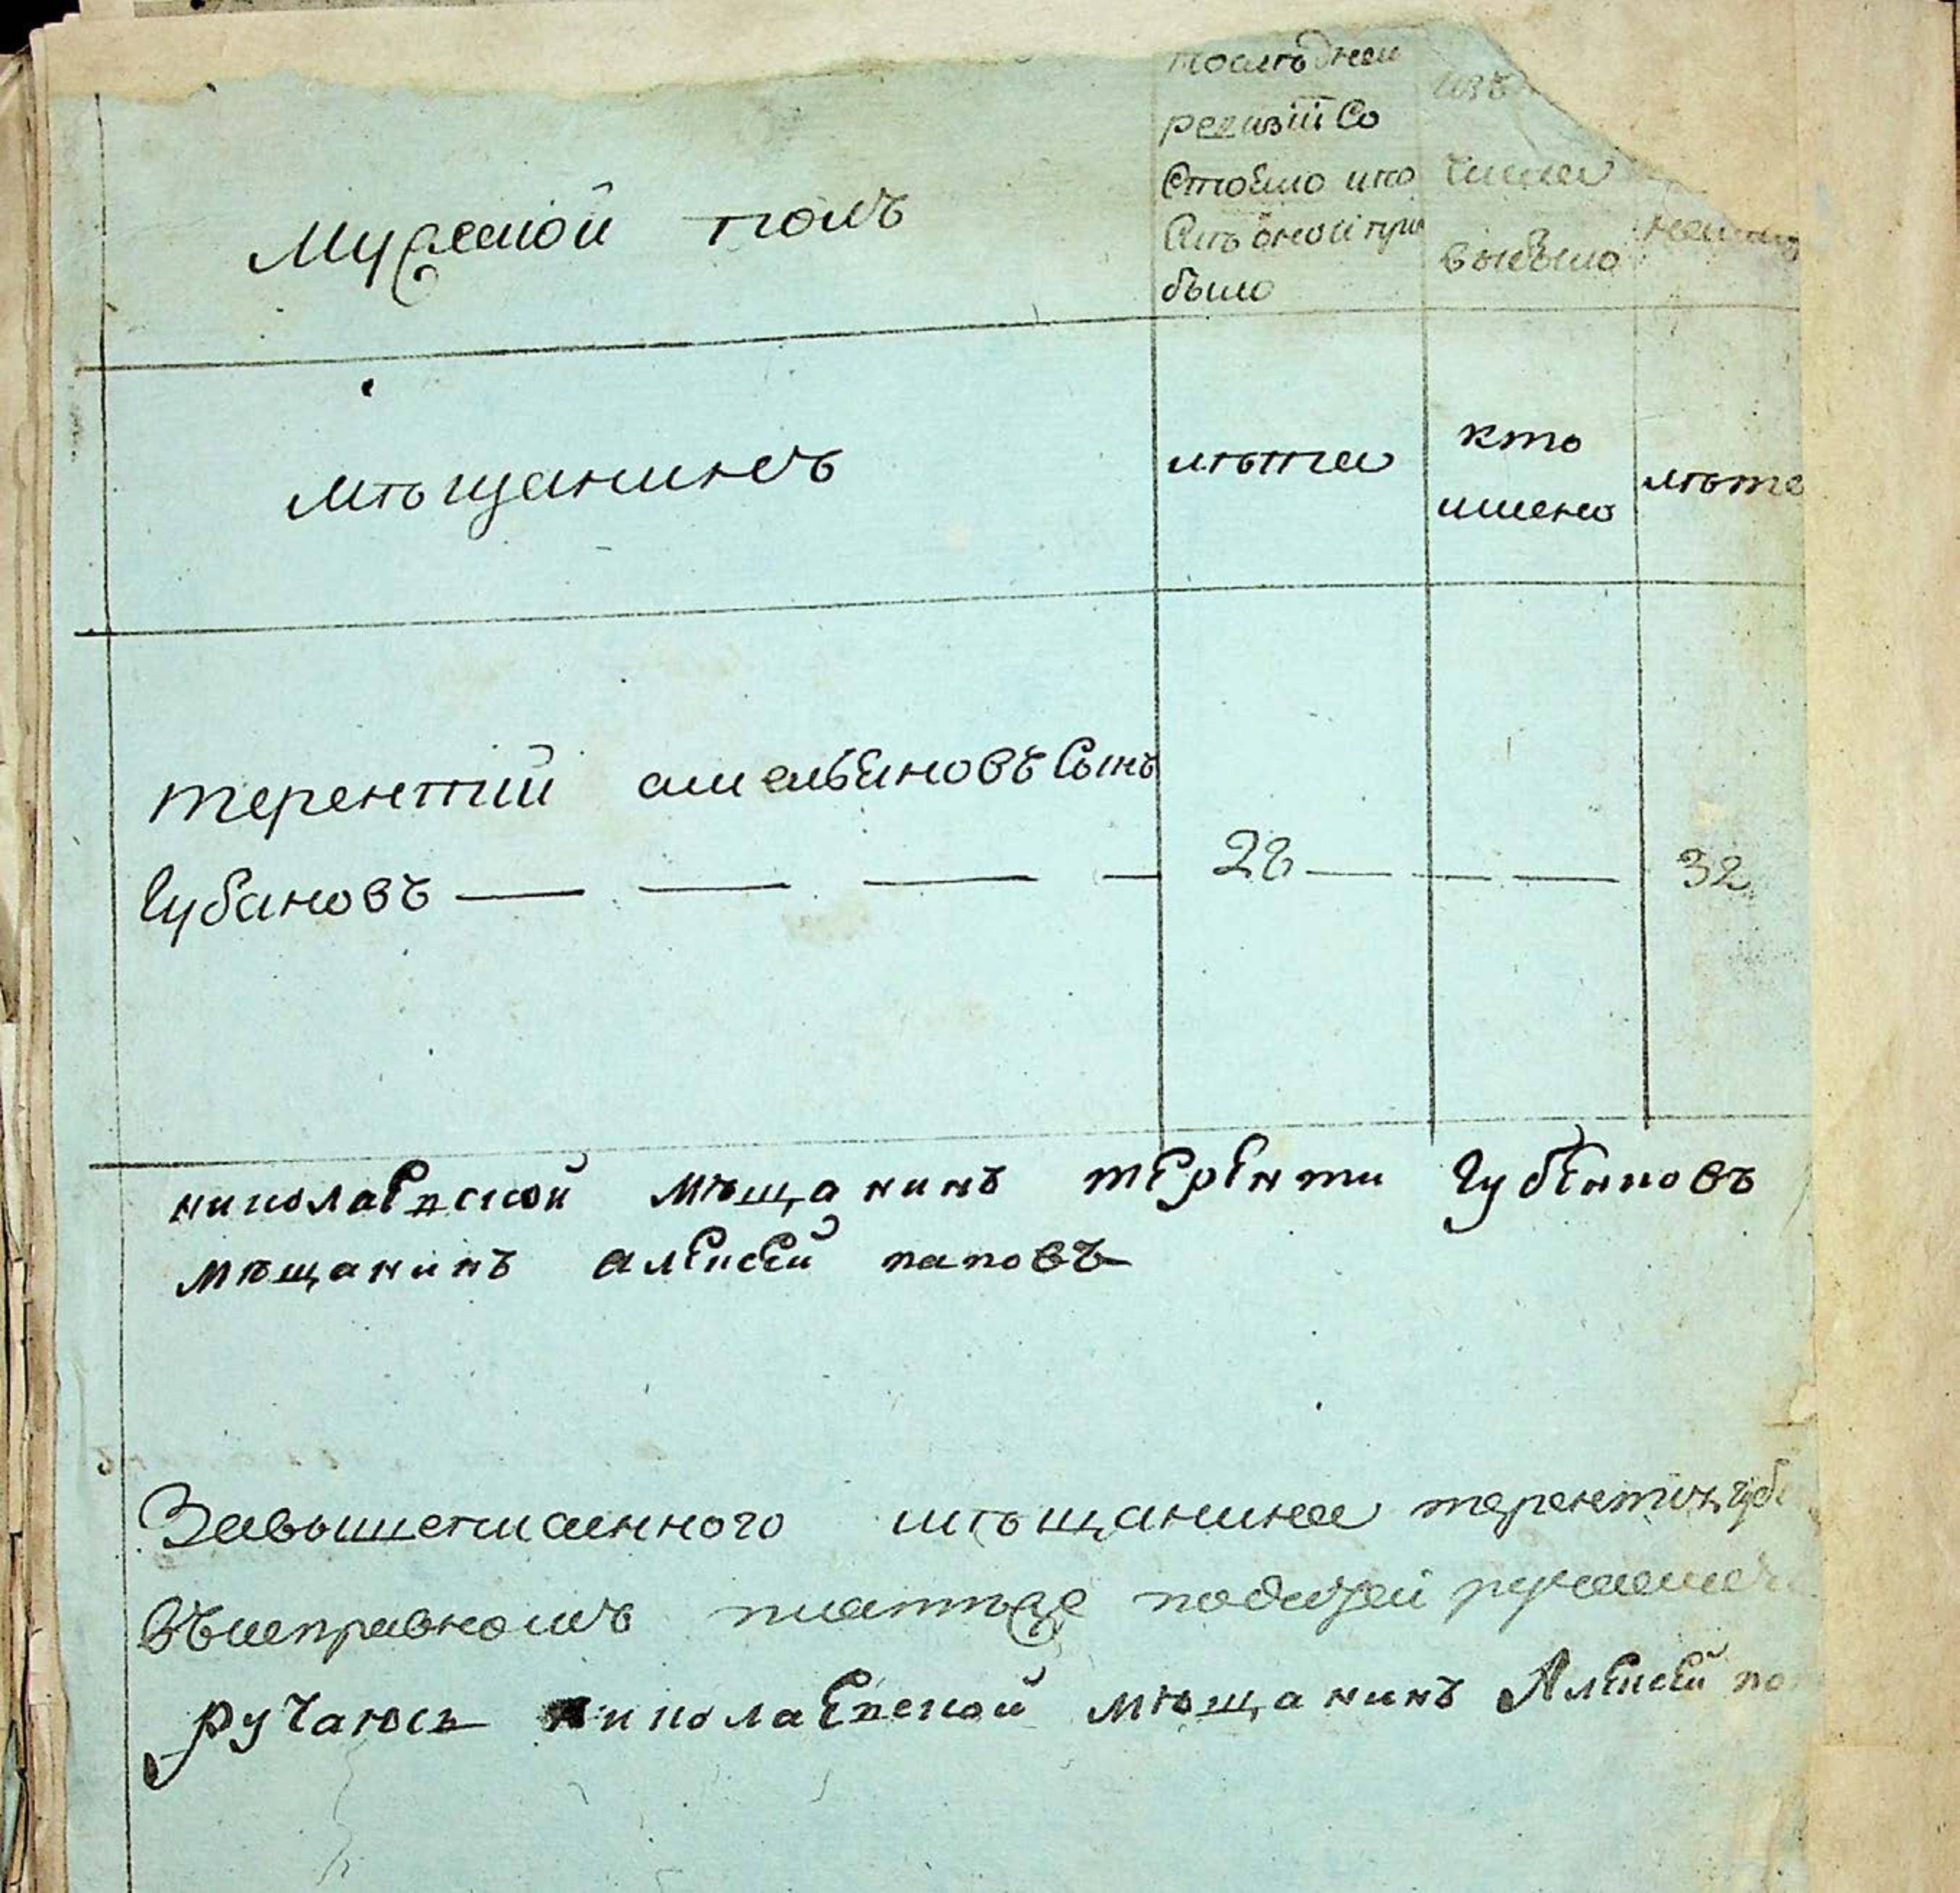 Мужеской полъ
последней
ревизіи Со
Стояло ипо
Слъ оной при
было
изъ
числа
выбыло
мѣщанинъ
лѣта
кто
имено
лѣта
терентий амельяновъ Сынъ
Губановъ — — — — 28 — — — 32
николаевской мѣщанинъ терЕнти Губановъ
мѣщанинъ алЕксЕй паповъ
Завышеписанного мѣщанина терентия Губа
Въисправномъ платеже податей
ручаюсь николаЕвской мѣщанинъ АлЕксЕй по